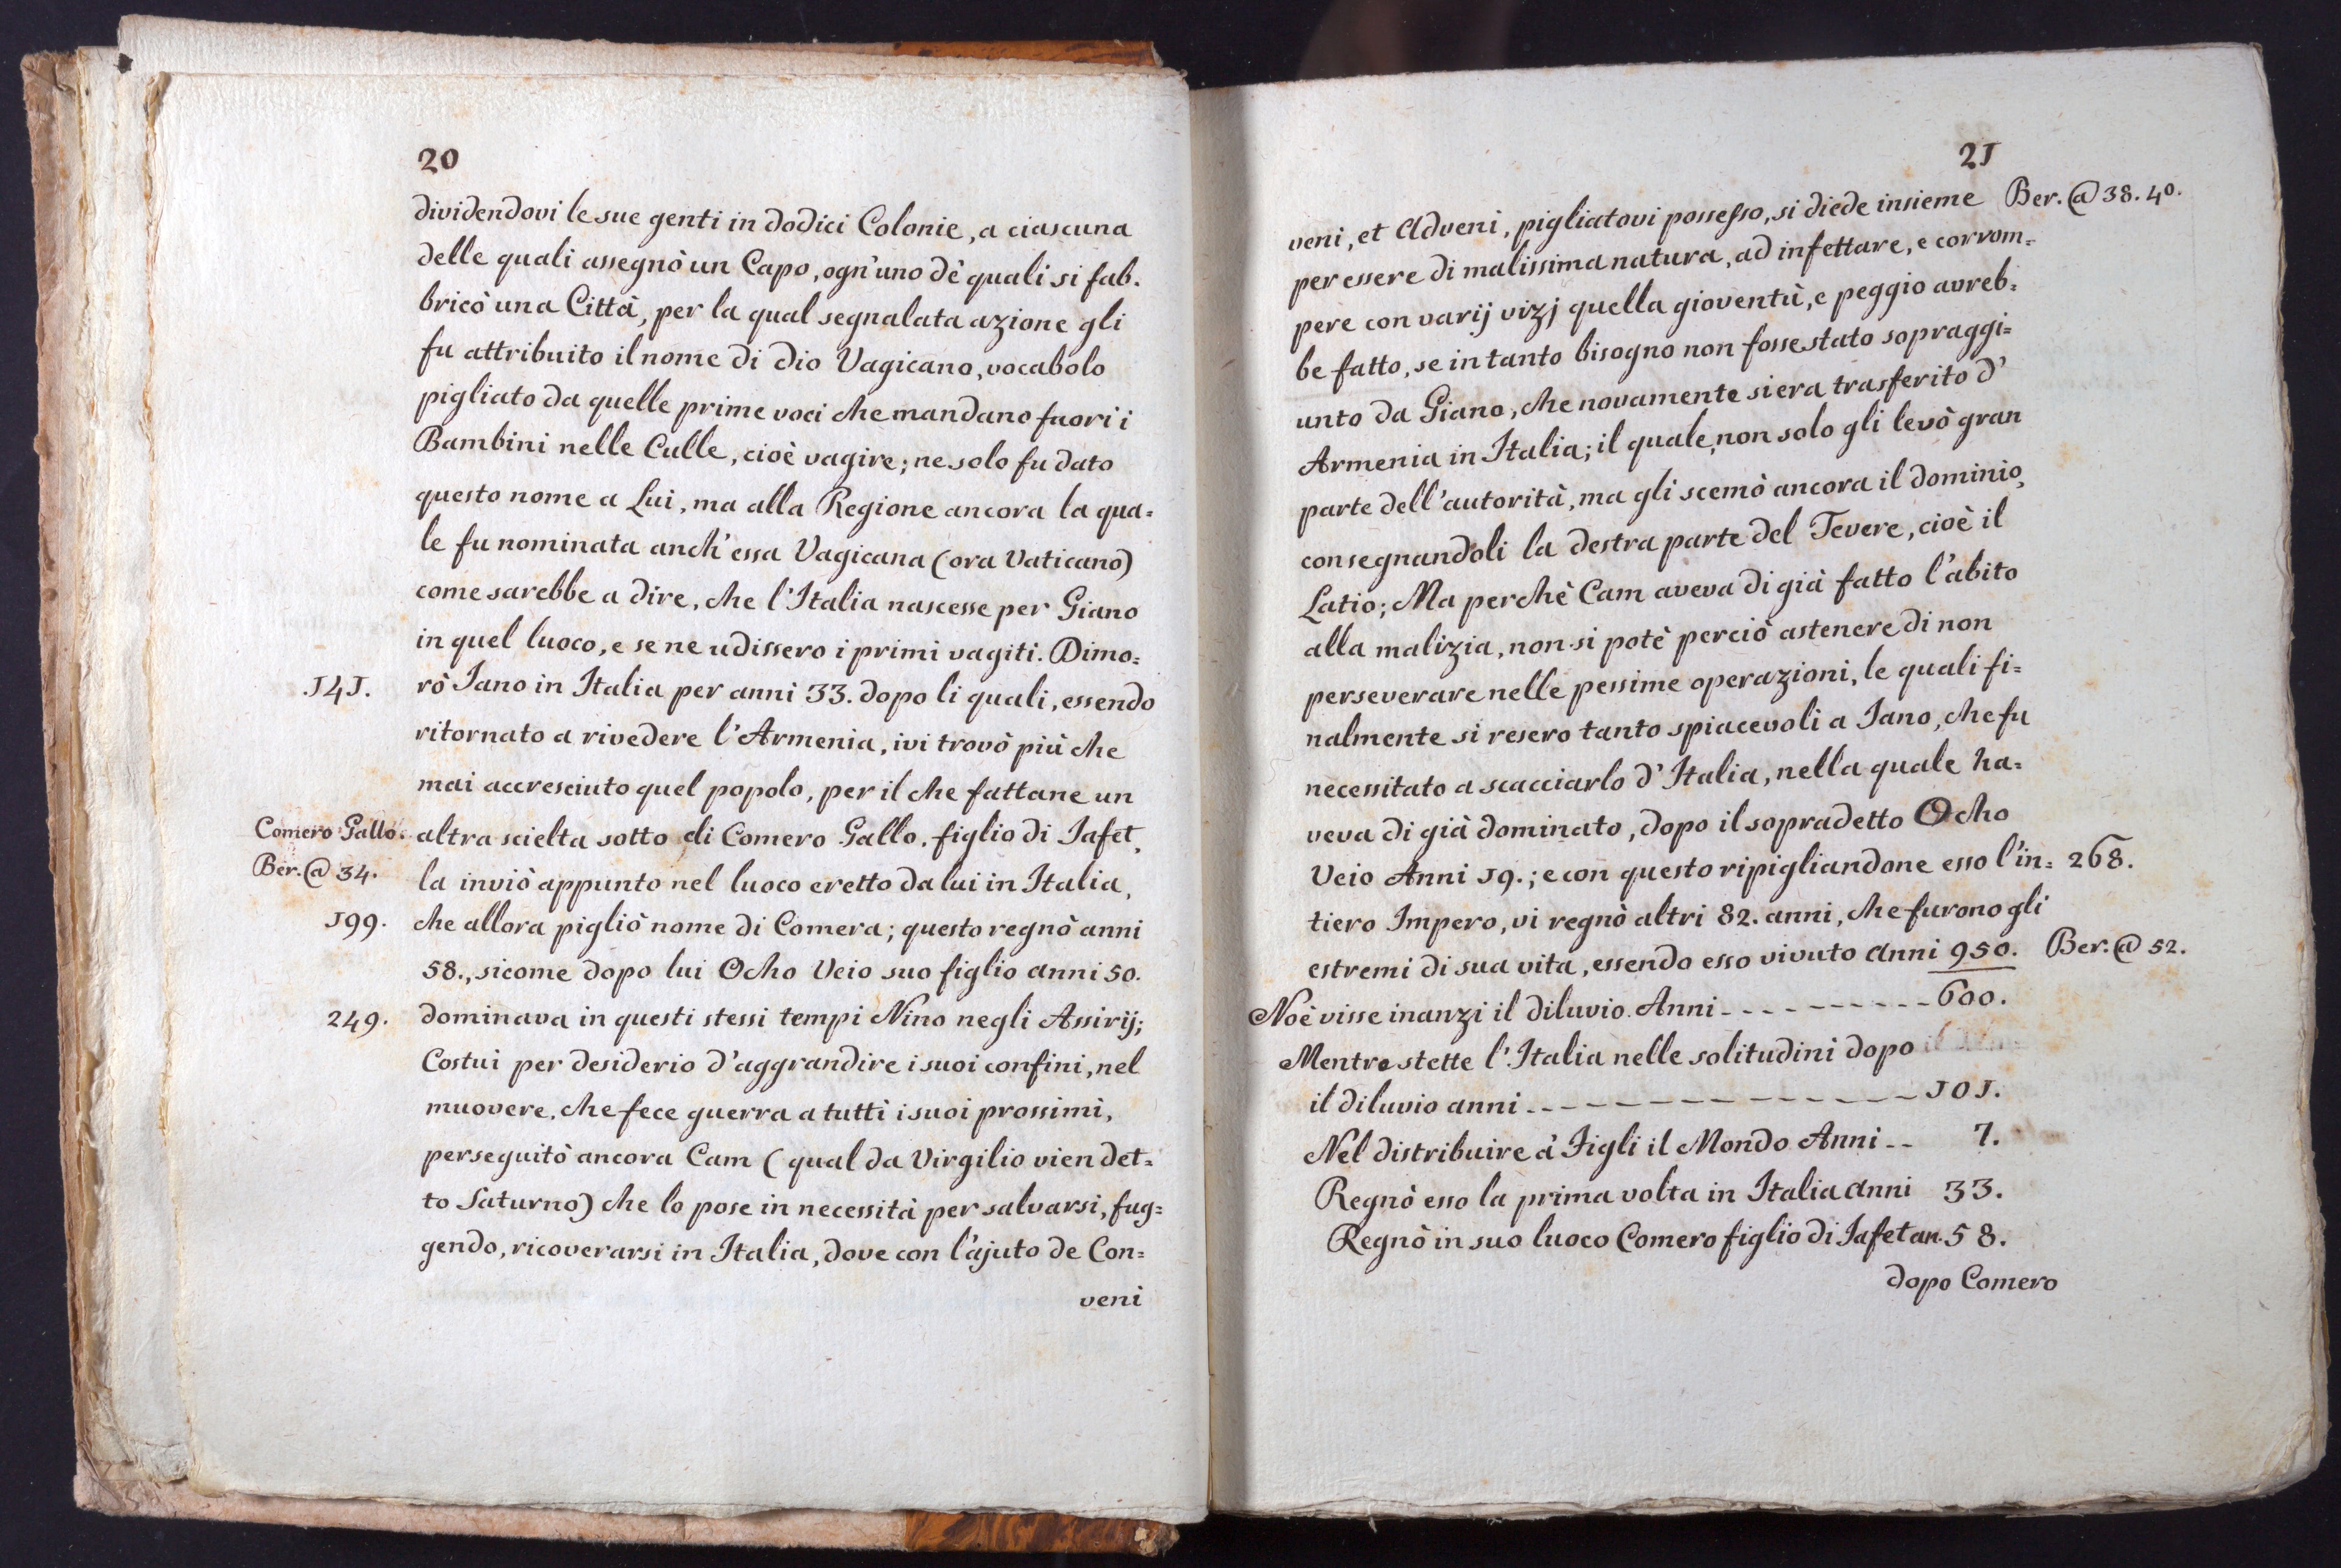 20
dividendovi le sue genti in dodici Colonie, a ciascuna
delle quali assegnò un Capo, ogn'uno dè quali si fab.
bricò una Città, per la qual segnalata azione gli
fu attribuito il nome di dio Vagicano, vocabolo
pigliato da quelle prime voci che mandano fuori i
Bambini nelle Culle, cioè vagire; ne solo fu dato
questo nome a Lui, ma alla Regione ancora la qua=
le fu nominata anch'essa Vagicana (ora Vaticano)
come sarebbe a dire, che l'Italia nascesse per Giano
in quel luoco, e se ne udissero i primi vagiti. Dimo=
.141. rò Iano in Italia per anni 33. dopo li quali, essendo
ritornato a rivedere l'Armenia, ivi trovò più che
mai accresciuto quel popolo, per il che fattane un
Comero Gallo. altra scielta sotto di Comero Gallo, figlio di Iafet,
Ber. @ 34. la inviò appunto nel luoco eretto da lui in Italia,
199. che allora pigliò nome di Comera; questo regnò anni
58., sicome dopo lui Ocho Veio suo figlio anni 50.
249. dominava in questi stessi tempi Nino negli Assirij;
Costui per desiderio d'aggrandire i suoi confini, nel
muovere, che fece guerra a tutti i suoi prossimi,
perseguitò ancora Cam (qual da Virgilio vien det=
to Saturno) che lo pose in necessità per salvarsi, fug=
gendo, ricoverarsi in Italia, dove con l'ajuto de Con=
veni
21
veni, et Adveni, pigliatovi possesso, si diede insieme Ber. @ 38. 40.
per essere di malissima natura, ad infettare, e corrom=
pere con varij vizj quella gioventù, e peggio avreb=
be fatto, se in tanto bisogno non fosse stato sopraggi=
unto da Giano, che novamente si era trasferito d'
Armenia in Italia; il quale, non solo gli levò gran
parte dell'autorità, ma gli scemò ancora il dominio,
consegnandoli la destra parte del Tevere, cioè il
Latio; Ma perchè Cam aveva di già fatto l'abito
alla malizia, non si potè perciò astenere di non
perseverare nelle pessime operazioni, le quali fi=
nalmente si resero tanto spiacevoli a Iano, che fu
necessitato a scacciarlo d'Italia, nella quale ha=
veva di già dominato, dopo il sopradetto Ocho
Veio Anni 19.; e con questo ripigliandone esso l'in= 268.
tiero Impero, vi regnò altri 82. anni, che furono gli
estremi di sua vita, essendo esso vivuto anni 950. Ber. @ 52.
Noè visse inanzi il diluvio. Anni - - - - - - - - - - 600.
Mentre stette l'Italia nelle solitudini dopo
il diluvio anni - - - - - - - - - - - - - - - 101.
Nel distribuire à Figli il Mondo Anni - - 7.
Regnò esso la prima volta in Italia anni 33.
Regnò in suo luoco Comero figlio di Iafet an. 58.
dopo Comero